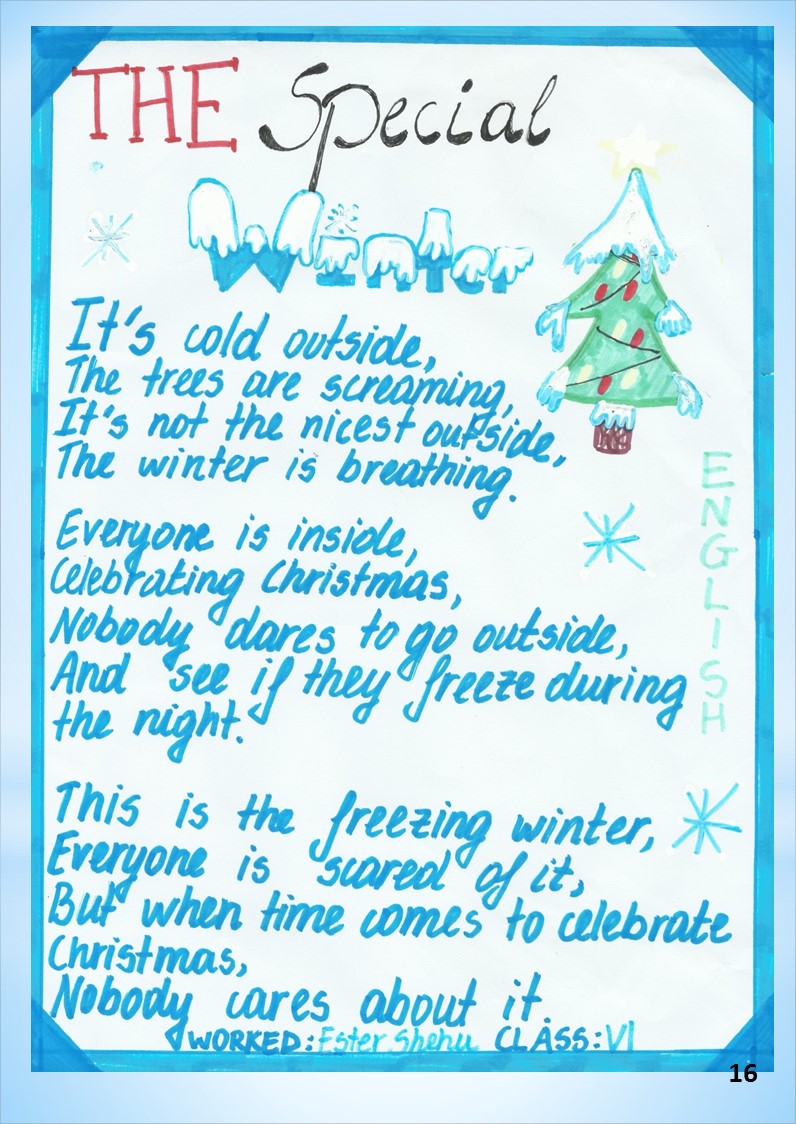 THE Special
Winter
It's cold outside,
The trees are screaming,
It's not the nicest outside,
The winter is breathing.
Everyone is inside,
Celebrating Christmas,
Nobody dares to go outside,
And see if they freeze during
the night.
This is the freezing winter,
Everyone is scared of it,
But when time comes to celebrate
Christmas,
Nobody cares about it.
WORKED: Ester Shehu CLASS: VI
ENGLISH
16